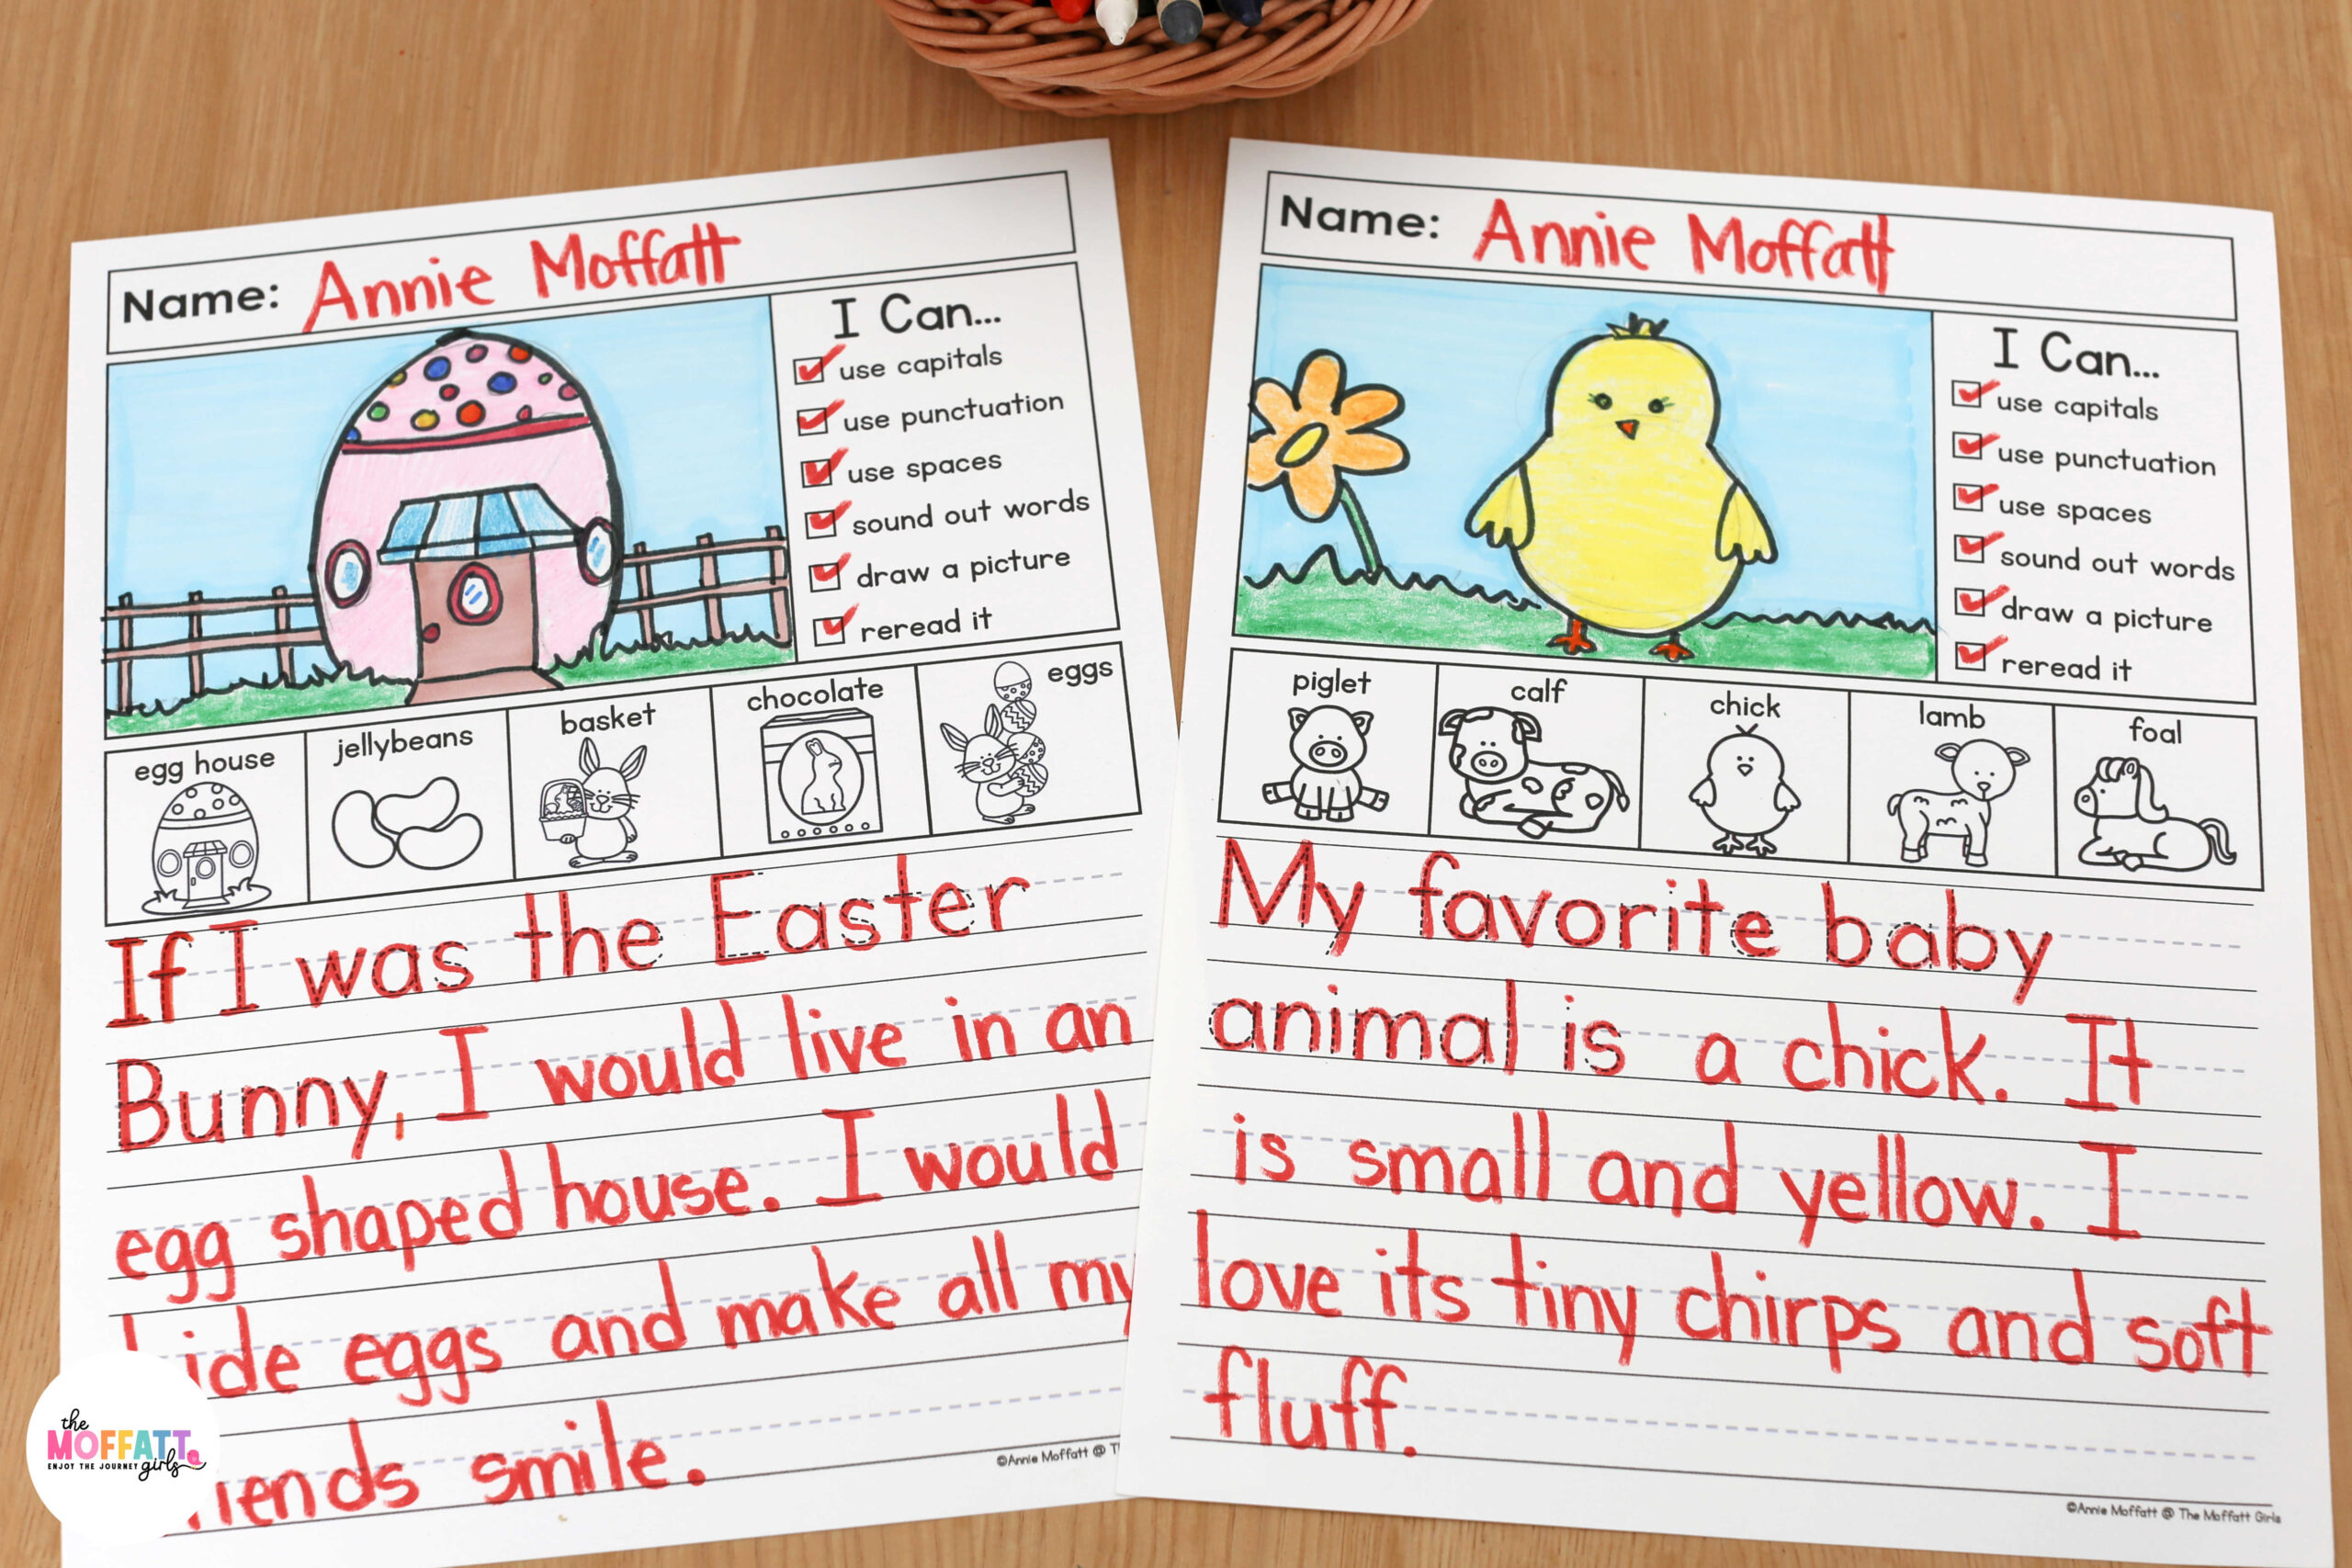 Name: Annie Moffatt
I Can...
use capitals
use punctuation
use spaces
sound out words
draw a picture
reread it
egg house
jellybeans
basket
chocolate
eggs
If I was the Easter
Bunny, I would live in an
egg shaped house. I would
eggs and make all my
smile.
©Annie Moffatt @
the
MOFFATT
girls
ENJOY THE JOURNEY
Name: Annie Moffatt
I Can...
use capitals
use punctuation
use spaces
sound out words
draw a picture
reread it
piglet
calf
chick
lamb
foal
My favorite baby
animal is a chick. It
is small and yellow. I
love its tiny chirps and soft
fluff.
©Annie Moffatt @ The Moffatt Girls